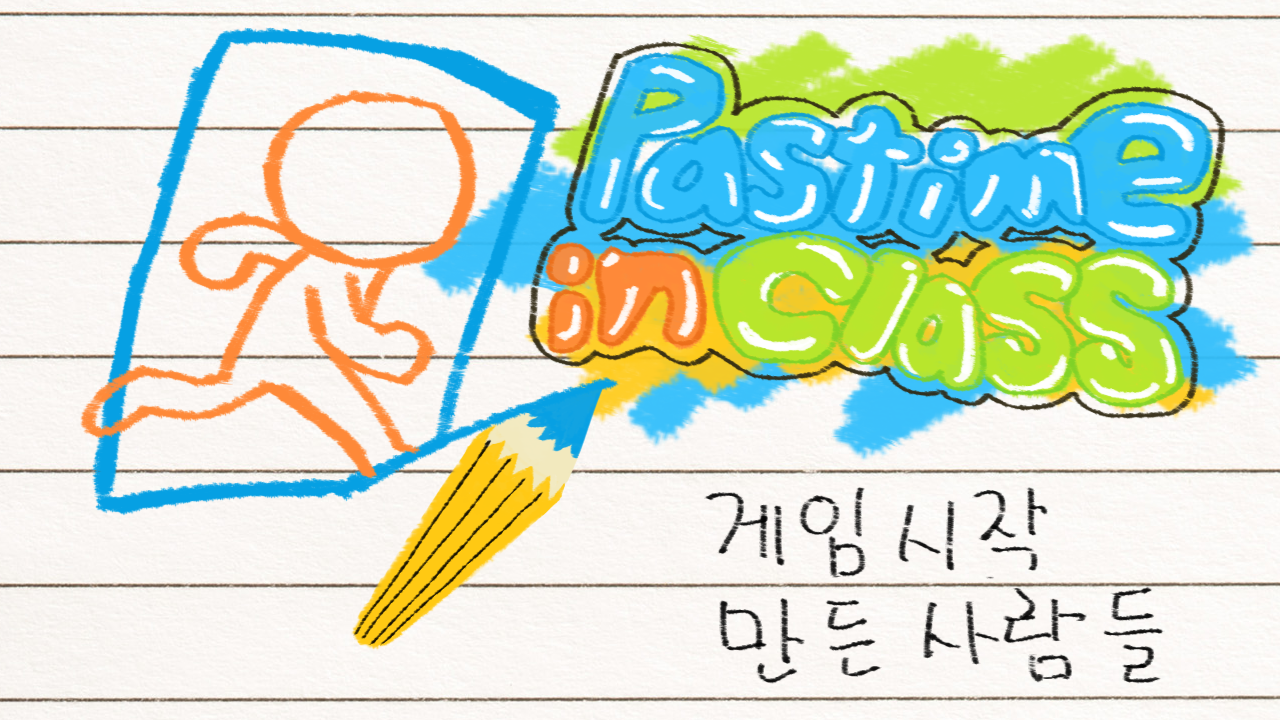 Pastime
in Class
게임 시작
만든 사람들